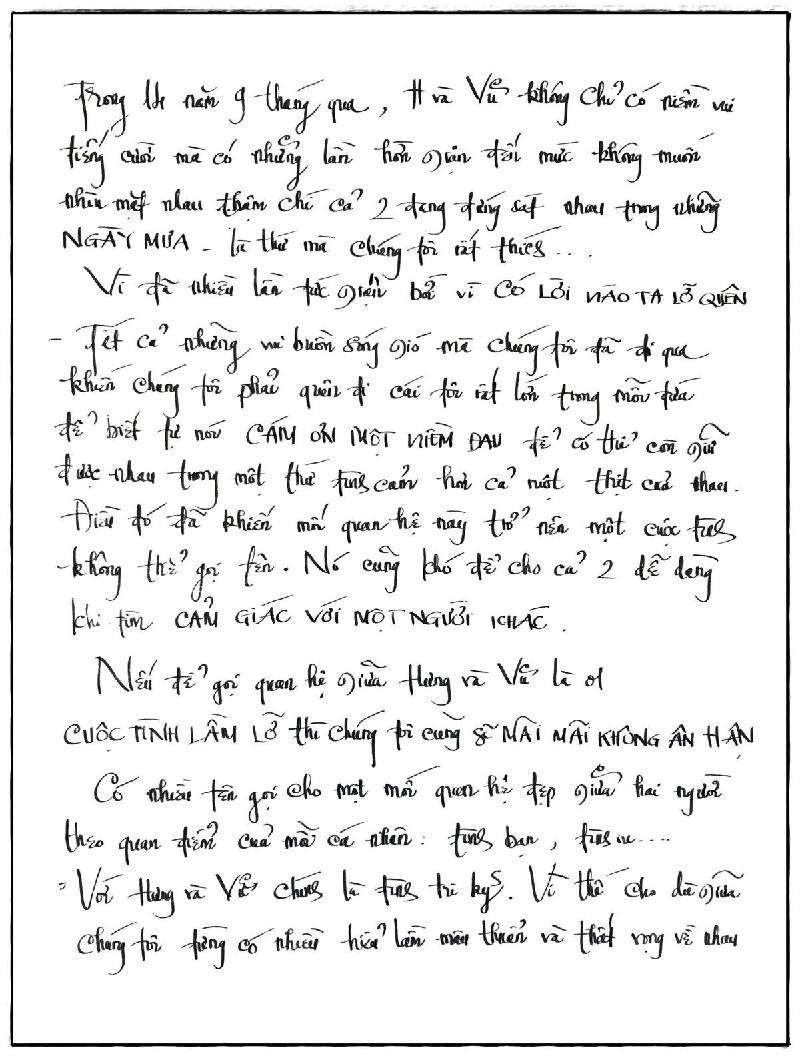 Trong 14 năm 9 tháng qua, H và Vũ không chỉ có niềm vui
tiếng cười mà có những lần hờn giận đến mức không muốn
nhìn mặt nhau thậm chí cả 2 đang đứng sát nhau trong những
NGÀY MƯA - là thứ mà chúng tôi rất thích...
Vì đã nhiều lần tức giận bởi vì CÓ LỜI NÀO TA LỠ QUÊN
- Tất cả những vui buồn sóng gió mà chúng tôi đã đi qua
khiến chúng tôi phải quên đi cái tôi rất lớn trong mỗi đứa
để biết tự nói CÁM ƠN MỘT NIỀM ĐAU để có thể còn giữ
được nhau trong một thứ tình cảm hơn cả ruột thịt của nhau.
Điều đó đã khiến mối quan hệ này trở nên một cuộc tình
không thể gọi tên. Nó cũng khó để cho cả 2 dễ dàng
khi tìm CẢM GIÁC VỚI MỘT NGƯỜI KHÁC.
Nếu để gọi quan hệ giữa Hưng và Vũ là 01
CUỘC TÌNH LẦM LỠ thì chúng tôi cũng sẽ MÃI MÃI KHÔNG ÂN HẬN
Có nhiều tên gọi cho một mối quan hệ đẹp giữa hai người
theo quan điểm của mỗi cá nhân: tình bạn, tình iu....
Với Hưng và Vũ chính là tình tri kỷ. Vì thế cho dù giữa
chúng tôi từng có nhiều hiểu lầm mâu thuẩn và thất vọng về nhau